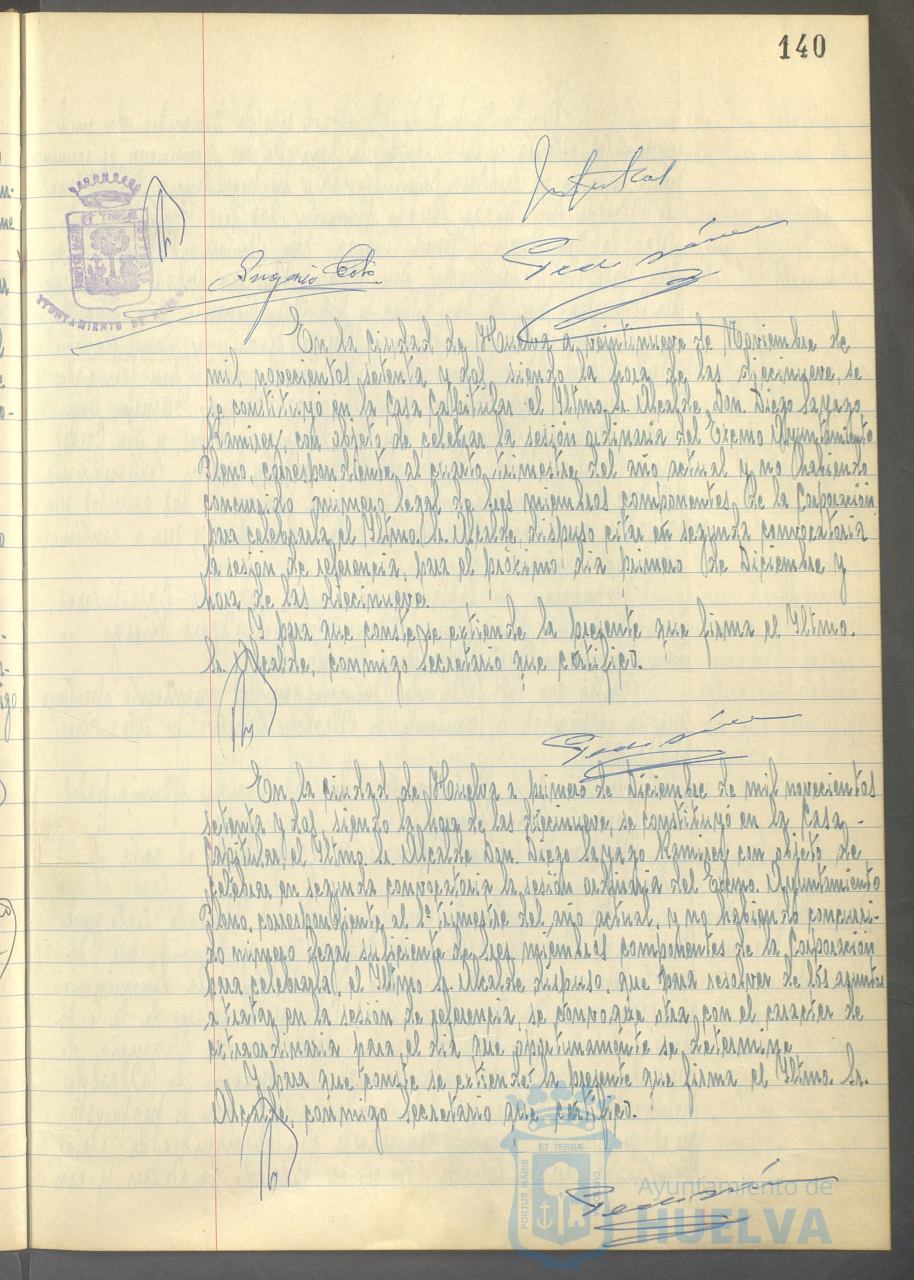 140
ET TERRAE
AYUNTAMIENTO DE
Eugenio
En la ciudad de Huelva a veintinueve de Noviembre de
mil novecientos setenta y dos siendo la hora de las diecinueve, se
se constituyó en la Casa Capitular el Iltmo. Sr. Alcalde Don Diego Sayago
Ramirez, con objeto de celebrar la sesión ordinaria del Excmo Ayuntamiento
Pleno, correspondiente al cuarto trimestre del año actual y no habiendo
concurrido número legal de Sres miembros componentes de la Corporación
para celebrarla, el Iltmo. Sr. Alcalde, dispuso citar en segunda convocatoria
la sesión de referencia, para el próximo día primero de Diciembre y
hora de las diecinueve.
Y para que conste se extiende la presente que firma el Iltmo.
Sr. Alcalde, conmigo Secretario que certifico.
En la ciudad de Huelva a primero de Diciembre de mil novecientos
setenta y dos, siendo la hora de las diecinueve, se constituyó en la Casa -
Capitular, el Iltmo Sr. Alcalde Don Diego Sayago Ramirez con objeto de
celebrar en segunda convocatoria la sesión ordinaria del Excmo. Ayuntamiento
Pleno, correspondiente al trimestre del año actual, y no habiendo concurri-
do número legal suficiente de Sres miembros componentes de la Corporación
para celebrarla, el Iltmo Sr. Alcalde dispuso, que para resolver de los asuntos
a tratar en la sesión de referencia, se convoque otra, con el caracter de
extraordinaria para el día que oportunamente se determine
Y para que conste se extiende la presente que firma el Iltmo. Sr.
Alcalde, conmigo Secretario que certifico.
PORTUS MARIS
ET TERRAE
CUSTODIA
Ayuntamiento de
HUELVA